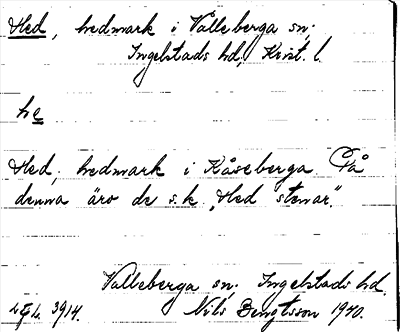 Hed, hedmark i Valleberga sn;
Ingelstads hd, Krist. l.
he
Hed, hedmark i Kåseberga. På
denna äro de s.k. „Hed stenar".
Valleberga sn; Ingelstads hd.
3914. Nils Bengtsson 1940.